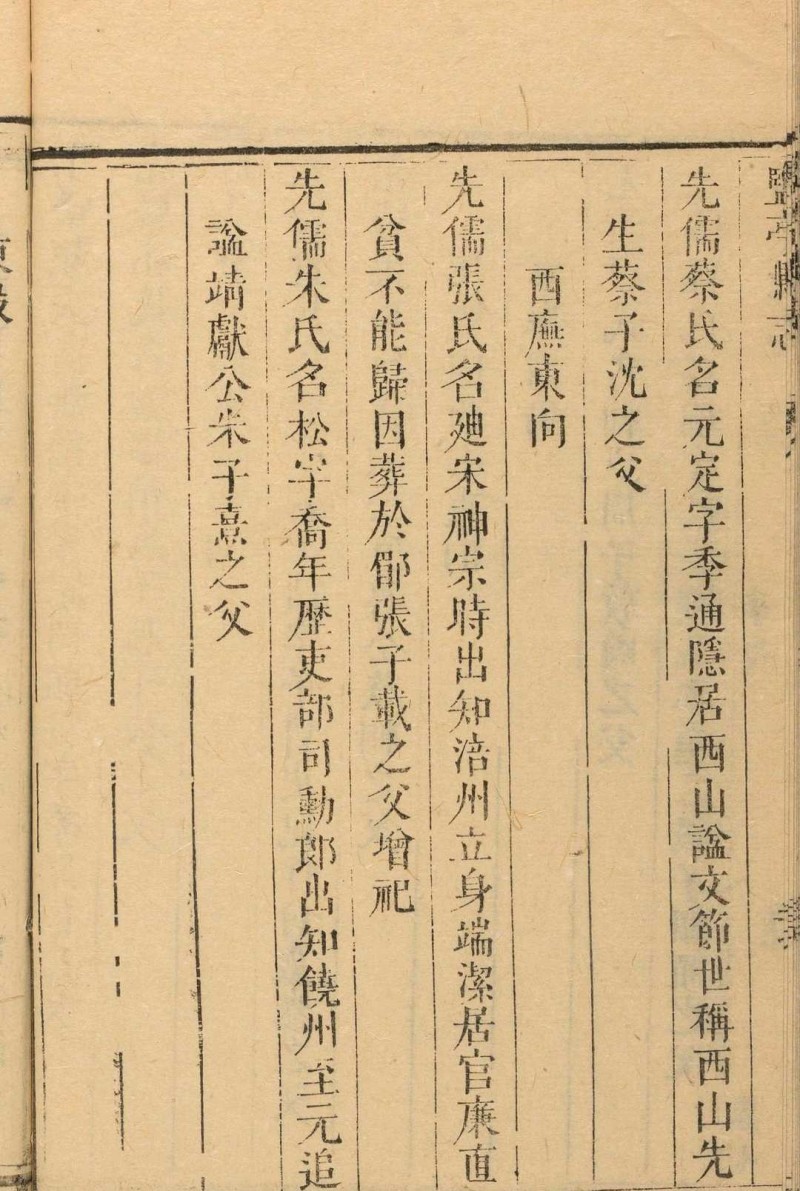 鹽亭縣志
先儒蔡氏名元定字季通隱居西山諡文節世稱西山先
生蔡子沈之父
西廡東向
先儒張氏名廸宋神宗時出知涪州立身端潔居官廉直
貧不能歸因葬於郿張子載之父增祀
先儒朱氏名松字喬年歷吏部司勳郎出知饒州至元追
諡靖獻公朱子熹之父